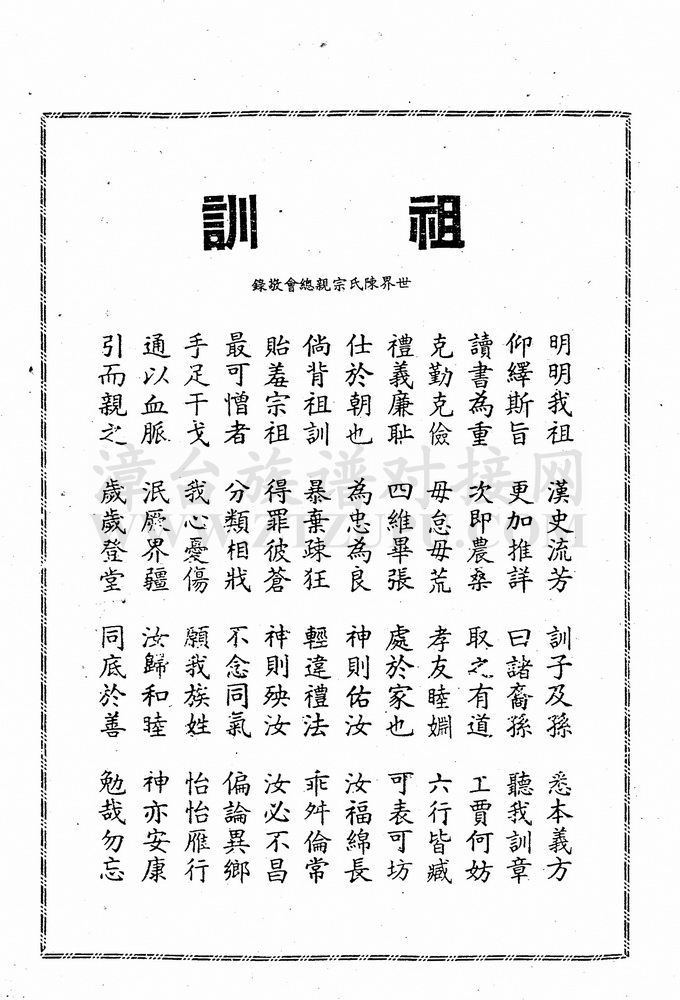 祖訓
世界陳氏宗親總會敬錄
明明我祖 漢史流芳 訓子及孫 悉本義方
仰繹斯旨 更加推詳 曰諸裔孫 聽我訓章
讀書為重 次即農桑 取之有道 工賈何妨
克勤克儉 毋怠毋荒 孝友睦婣 六行皆臧
禮義廉耻 四維畢張 處於家也 可表可坊
仕於朝也 為忠為良 神則佑汝 汝福綿長
倘背祖訓 暴棄疎狂 輕違禮法 乖舛倫常
貽羞宗祖 得罪彼蒼 神則殃汝 汝必不昌
最可憎者 分類相戕 不念同氣 偏論異鄉
手足干戈 我心憂傷 願我族姓 怡怡雁行
通以血脈 泯厥界疆 汝歸和睦 神亦安康
引而親之 歲歲登堂 同底於善 勉哉勿忘
漳台族谱对接网
WWW.ZTZUPU.COM